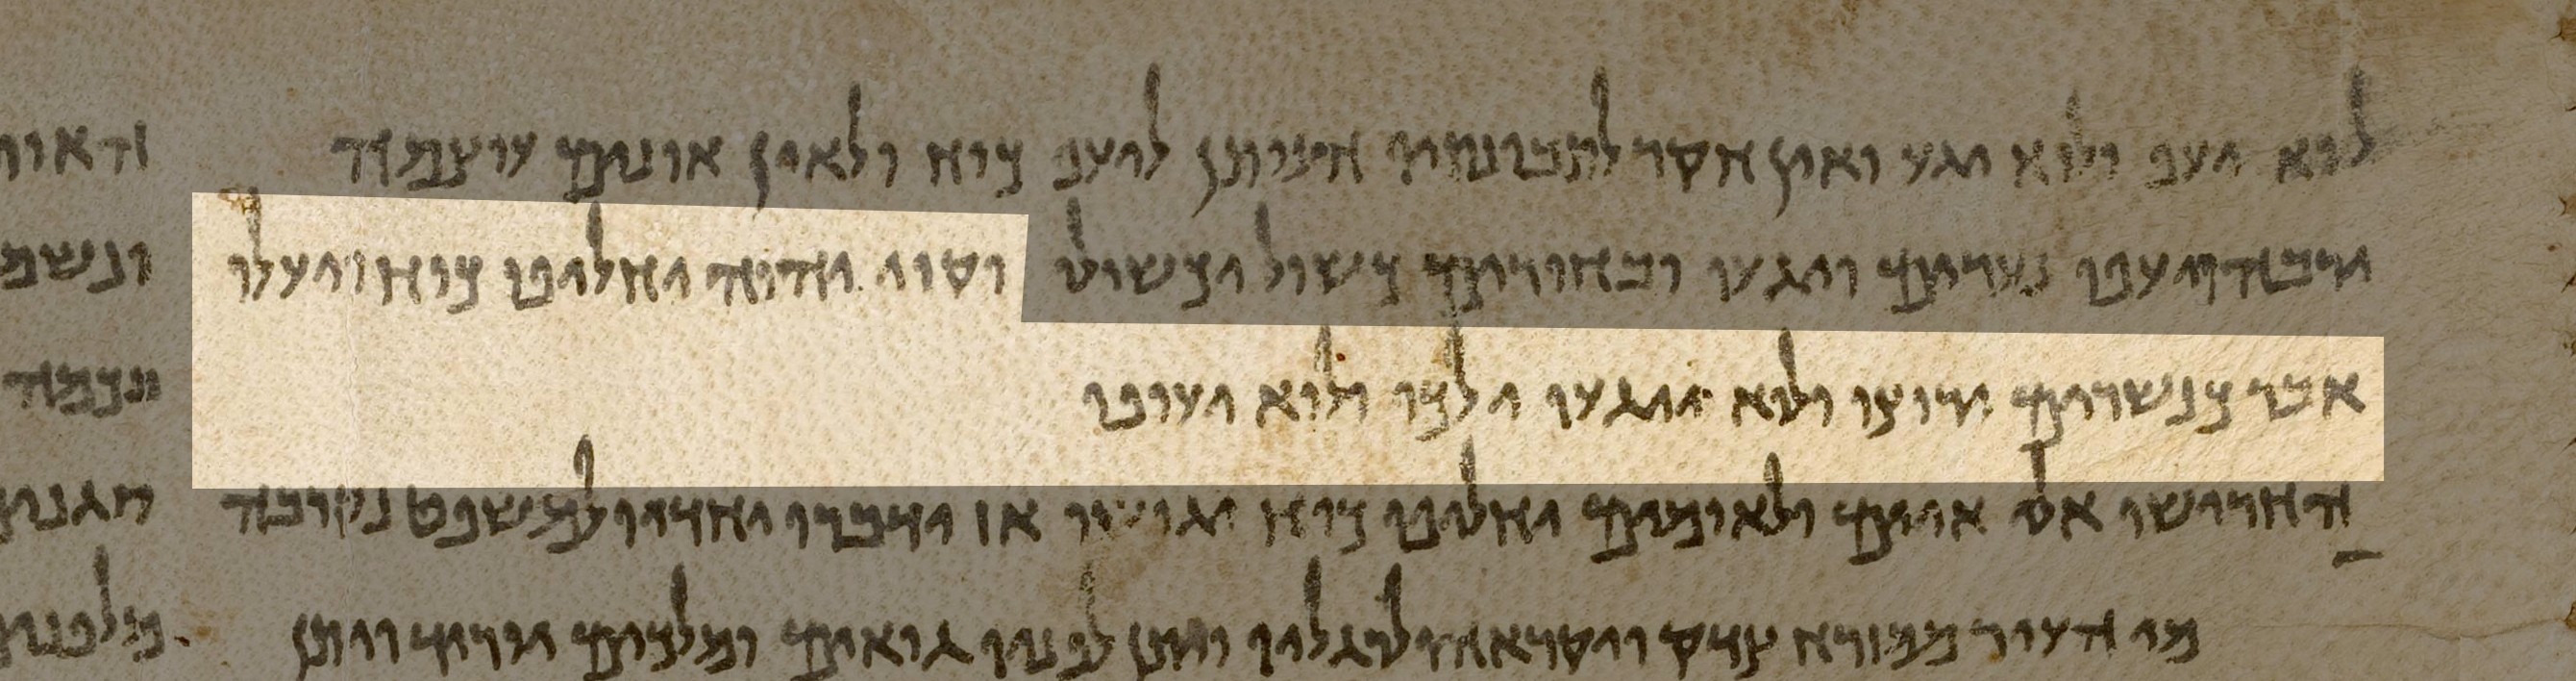 לוא יעף ולוא יגע ואין חקר לתבונתיו הנותן ליעף כוח ולאין אונים עוצמה
ירבה ויעפו נערים ויגעו ובחורים כשול יכשולו וקוי יהוה יחליפו כוח ויעלו
אבר כנשרים ירוצו ולוא יגעו ילכו ולוא יעופו
החרישו אלי איים ולאומים יחליפו כוח יגישו אז ידברו יחדיו למשפט נקרבה
מי העיר ממזרח צדק ויקראהו לרגליו ויתן לפניו גואים ומלכים יוריד ויתן